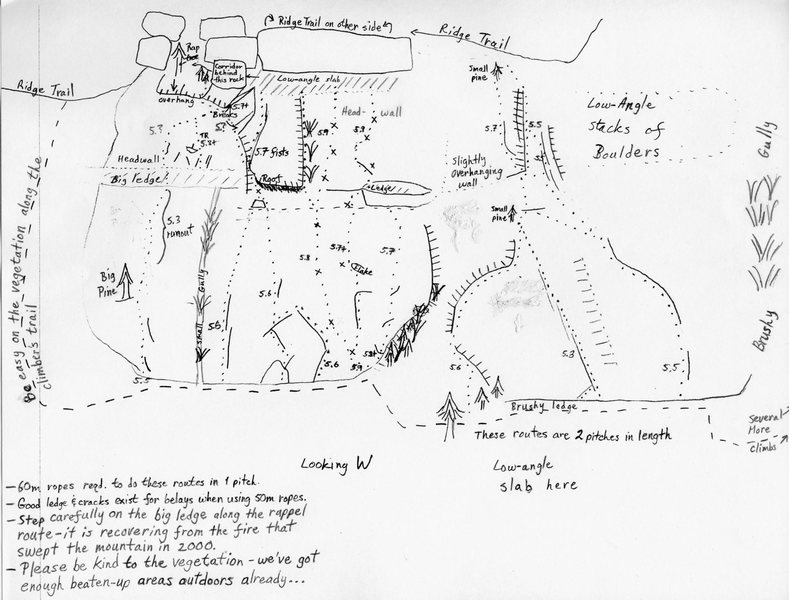 Ridge Trail on other side
Ridge Trail
Rap
tree
Corridor
behind
this rock
Low-angle slab
Small
pine
Ridge Trail
overhang
5.7+
Breaks
Head-
wall
Low-Angle
Stacks of
Boulders
5.3
TR
5.8+
5.9
5.9
5.7
5.5
Gully
5.7 fists
Headwall
Slightly
Overhanging
wall
Big ledge
Root
Ledge
Small
pine
5.3
runout
5.7+
5.7
5.8
Flake
Big
Pine
Gully
5.6
Small
5.6
Brushy
5.6
5.9
5.6
5.3
5.5
5.5
Be easy on the vegetation along the
climber's trail
Brushy ledge
Several
More
Climbs
These routes are 2 pitches in length
Looking W
Low-angle
slab here
- 60m ropes reqd. to do these routes in 1 pitch.
- Good ledge & cracks exist for belays when using 50m ropes.
- Step carefully on the big ledge along the rappel
route - it is recovering from the fire that
swept the mountain in 2000.
- Please be kind to the vegetation - we've got
enough beaten-up areas outdoors already...